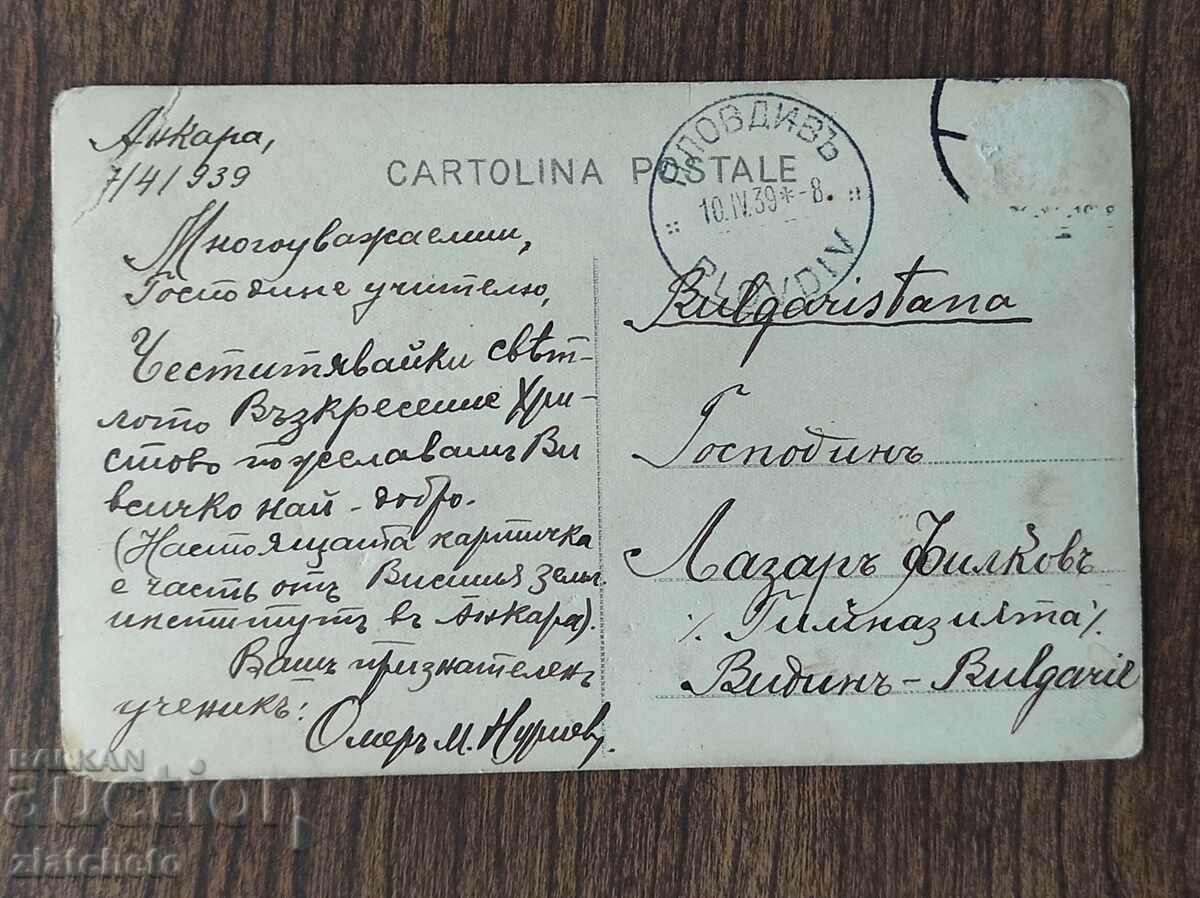 Анкара,
7/4/939
CARTOLINA POSTALE
ПЛОВДИВЪ
10.IV.39*-8.
PLOVDIV
Многоуважаемий,
Господине учителю,
Честитявайки свѣт-
лото Възкресение Хри-
стово пожелавамъ Ви
всичко най-добро.
(Настоящата картичка
е часть отъ Висшия земл.
институтъ въ Анкара).
Вашъ признателенъ
ученикъ:
Омеръ М. Нуриев
Bulgaristana
Господинъ
Лазаръ Филковъ
% Гимназията %
Видинъ - Bulgarie
BALKAN
auction
zlatcheto